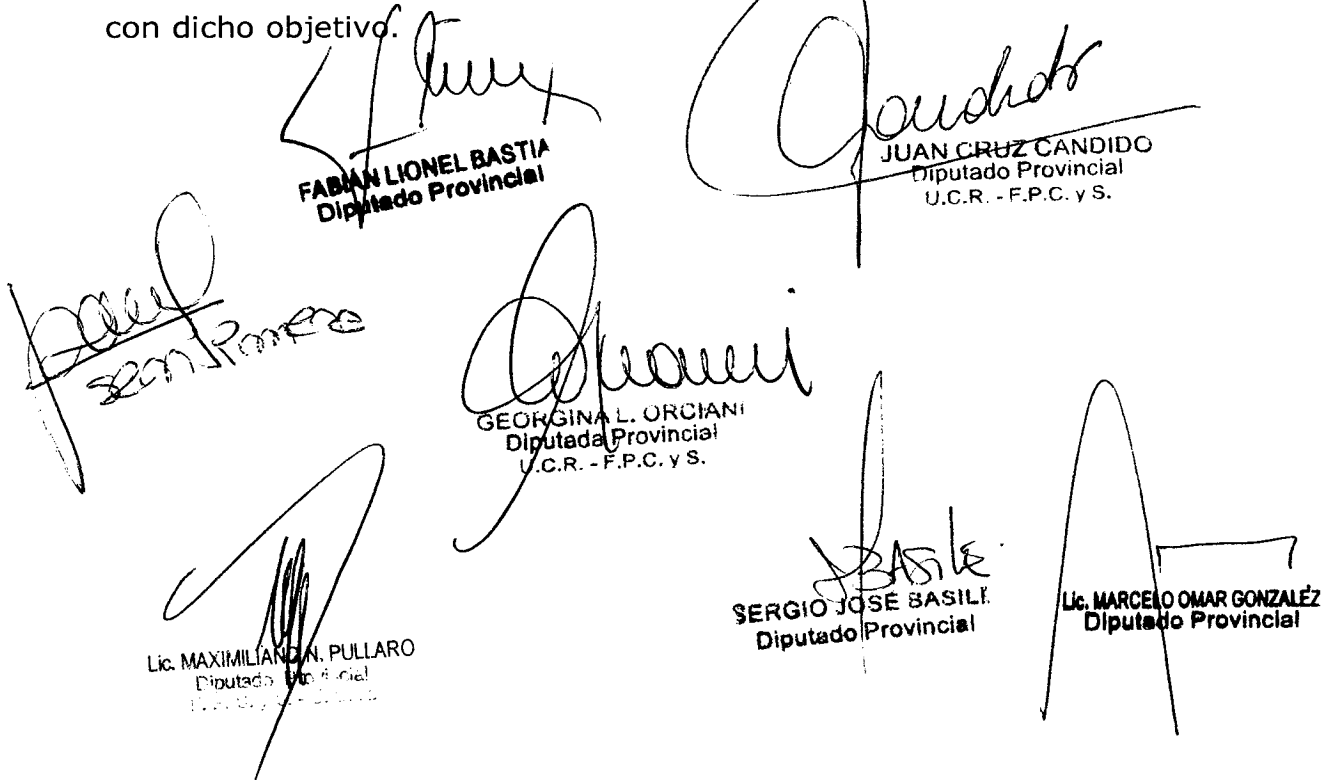 con dicho objetivo.
FABIAN LIONEL BASTIA
Diputado Provincial
JUAN CRUZ CANDIDO
Diputado Provincial
U.C.R. - F.P.C. y S.
GEORGINA L. ORCIANI
Diputada Provincial
U.C.R. - F.P.C. y S.
Lic. MAXIMILIANO N. PULLARO
Diputado Provincial
BASILE
SERGIO JOSÉ BASILE
Diputado Provincial
Lic. MARCELO OMAR GONZALÉZ
Diputado Provincial